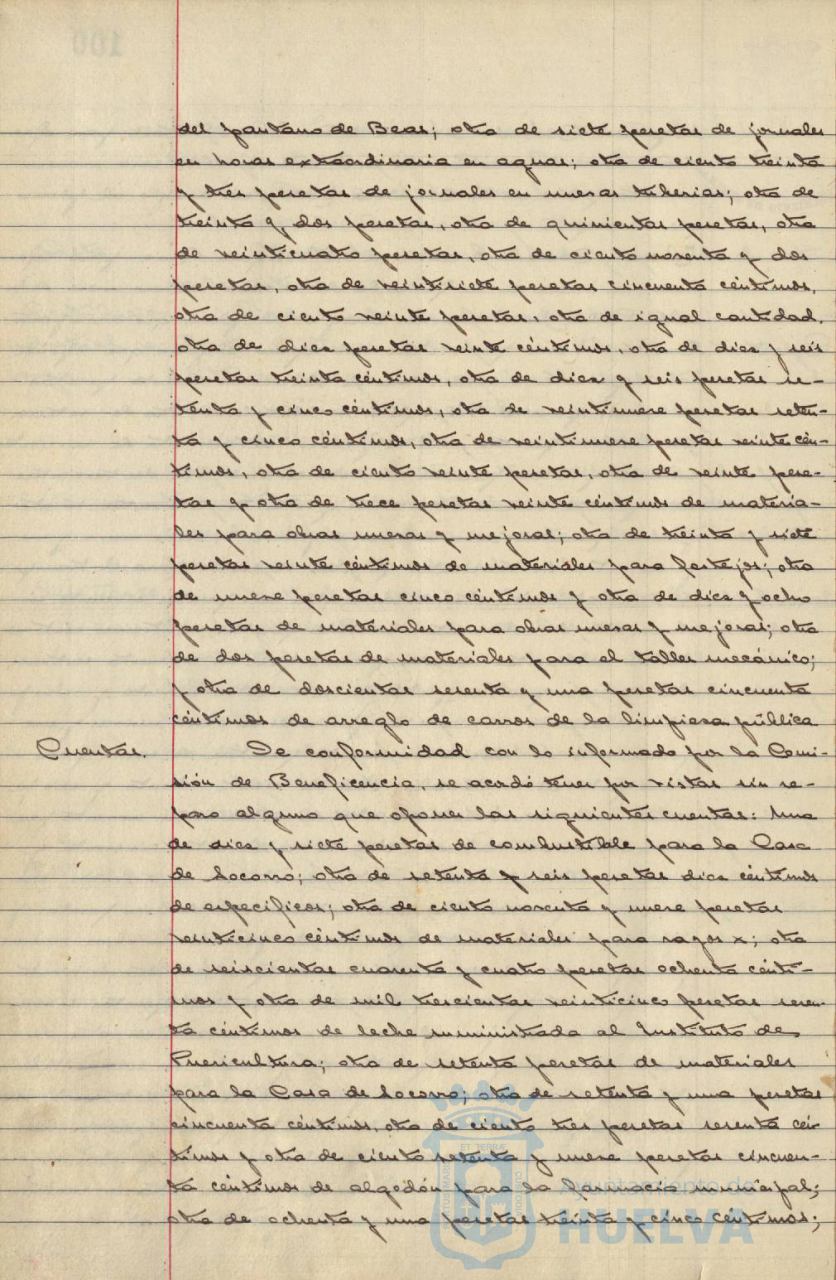 del pantano de Beas; otra de siete pesetas de jornales
en horas extraordinaria en aguas; otra de ciento treinta
y tres pesetas de jornales en nuevas tuberias; otra de
treinta y dos pesetas, otra de quinientas pesetas, otra
de veinticuatro pesetas, otra de ciento noventa y dos
pesetas, otra de veintisiete pesetas cincuenta céntimos,
otra de ciento veinte pesetas, otra de igual cantidad,
otra de diez pesetas veinte céntimos, otra de diez y seis
pesetas treinta céntimos, otra de diez y seis pesetas se-
tenta y cinco céntimos, otra de veintinueve pesetas seten-
ta y cinco céntimos, otra de veintinueve pesetas veinte cén-
timos, otra de ciento veinte pesetas, otra de veinte pese-
tas y otra de trece pesetas veinte céntimos de materia-
les para obras nuevas y mejoras; otra de treinta y siete
pesetas veinte céntimos de materiales para festejos; otra
de nueve pesetas cinco céntimos y otra de diez y ocho
pesetas de materiales para obras nuevas y mejoras; otra
de dos pesetas de materiales para el taller mecánico;
y otra de doscientas sesenta y una pesetas cincuenta
céntimos de arreglo de carros de la limpieza pública
Cuentas. De conformidad con lo informado por la Comi-
sión de Beneficencia, se acordó tener por vistas sin re-
paro alguno que oponer las siguientes cuentas: Una
de diez y siete pesetas de combustible para la Casa
de Socorro; otra de setenta y seis pesetas diez céntimos
de especificos; otra de ciento noventa y nueve pesetas
veinticinco céntimos de materiales para rayos x; otra
de seiscientas cuarenta y cuatro pesetas ochenta cénti-
mos y otra de mil trescientas veinticinco pesetas sesen-
ta céntimos de leche suministrada al Instituto de
Puericultura; otra de setenta pesetas de materiales
para la Casa de Socorro; otra de setenta y una pesetas
cincuenta céntimos, otra de ciento tres pesetas sesenta cén-
timos y otra de ciento setenta y nueve pesetas cincuen-
ta céntimos de algodón para la farmacia municipal;
otra de ochenta y una pesetas treinta y cinco céntimos;
Ayuntamiento de
HUELVA